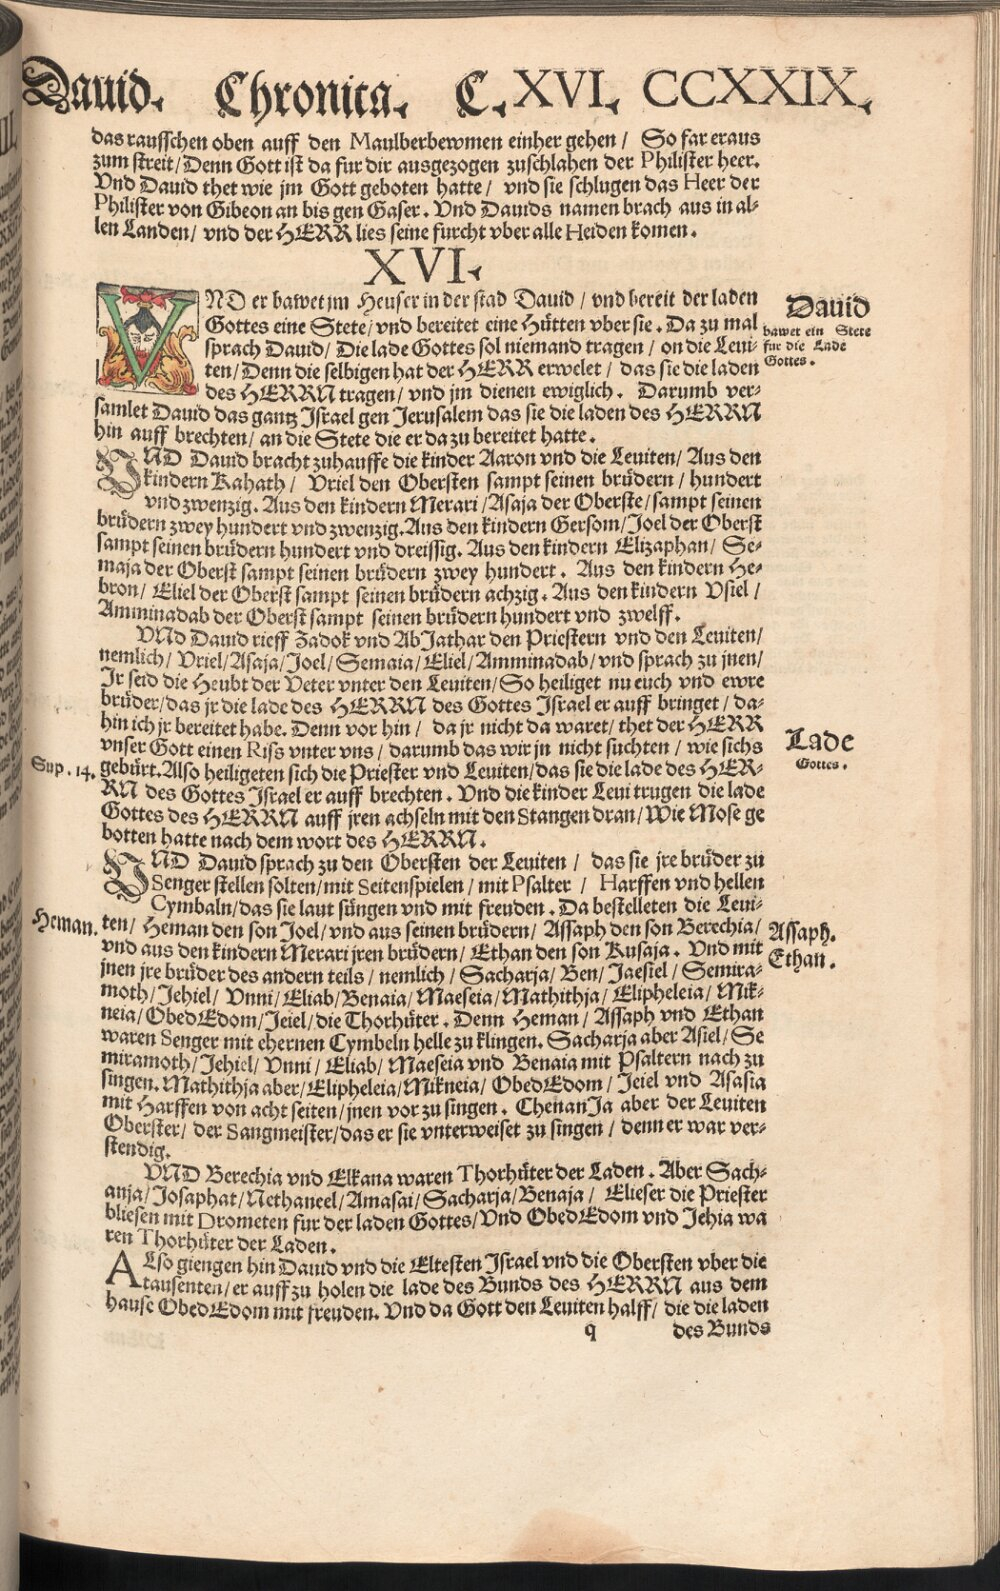 Dauid. Chronica. C. XVI. CCXXIX.
das rausschen oben auff den Maulberbewmen einher gehen / So far eraus
zum streit / Denn Gott ist da fur dir ausgezogen zuschlahen der Philister heer.
Vnd Dauid thet wie jm Gott geboten hatte / vnd sie schlugen das Heer der
Philister von Gibeon an bis gen Gaser. Vnd Dauids namen brach aus in al-
len Landen / vnd der HERR lies seine furcht vber alle Heiden komen.
XVI.
VND er bawet jm Heuser in der stad Dauid / vnd bereit der laden
Gottes eine Stete / vnd bereitet eine Hütten vber sie. Da zu mal
sprach Dauid / Die lade Gottes sol niemand tragen / on die Leui-
ten / Denn die selbigen hat der HERR erwelet / das sie die laden
des HERRN tragen / vnd jm dienen ewiglich. Darumb ver-
samlet Dauid das gantz Israel gen Jerusalem das sie die laden des HERRN
hin auff brechten / an die Stete die er da zu bereitet hatte.
Dauid
bawet ein Stete
fur die Lade
Gottes.
VND Dauid bracht zuhauffe die kinder Aaron vnd die Leuiten / Aus den
kindern Kahath / Vriel den Obersten sampt seinen brüdern / hundert
vnd zwenzig. Aus den kindern Merari / Asaja der Oberste / sampt seinen
brüdern zwey hundert vnd zwenzig. Aus den kindern Gersom / Joel der Oberst
sampt seinen brüdern hundert vnd dreissig. Aus den kindern Elizaphan / Se-
maja der Oberst sampt seinen brüdern zwey hundert. Aus den kindern He-
bron / Eliel der Oberst sampt seinen brüdern achzig. Aus den kindern Vsiel /
Amminadab der Oberst sampt seinen brüdern hundert vnd zwelff.
VNd Dauid rieff Zadok vnd AbJathar den Priestern vnd den Leuiten /
nemlich / Vriel / Asaja / Joel / Semaia / Eliel / Amminadab / vnd sprach zu jnen /
Ir seid die Heubt der Veter vnter den Leuiten / So heiliget nu euch vnd ewre
brüder / das jr die lade des HERRN des Gottes Israel er auff bringet / da-
hin ich jr bereitet habe. Denn vor hin / da jr nicht da waret / thet der HERR
vnser Gott einen Riss vnter vns / darumb das wir jn nicht suchten / wie sichs
gebürt. Also heiligeten sich die Priester vnd Leuiten / das sie die lade des HER-
RN des Gottes Israel er auff brechten. Vnd die kinder Leui trugen die lade
Gottes des HERRN auff jren achseln mit den Stangen dran / Wie Mose ge
botten hatte nach dem wort des HERRN.
Lade
Gottes.
Sup. 14.
VND Dauid sprach zu den Obersten der Leuiten / das sie jre brüder zu
Senger stellen solten / mit Seitenspielen / mit Psalter / Harffen vnd hellen
Cymbaln / das sie laut süngen vnd mit freuden. Da bestelleten die Leui-
ten / Heman den son Joel / vnd aus seinen brüdern / Assaph den son Berechia /
vnd aus den kindern Merari jren brüdern / Ethan den son Kusaja. Vnd mit
jnen jre brüder des andern teils / nemlich / Sacharja / Ben / Jaesiel / Semira-
moth / Jehiel / Vnni / Eliab / Benaia / Maeseia / Mathithja / Elipheleia / Mik-
neia / ObedEdom / Jeiel / die Thorhüter. Denn Heman / Assaph vnd Ethan
waren Senger mit ehernen Cymbeln helle zu klingen. Sacharja aber Asiel / Se
miramoth / Jehiel / Vnni / Eliab / Maeseia vnd Benaia mit Psaltern nach zu
singen. Mathithja aber / Elipheleia / Mikneia / ObedEdom / Jeiel vnd Asasia
mit Harffen von acht seiten / jnen vor zu singen. ChenanJa aber der Leuiten
Oberster / der Sangmeister / das er sie vnterweiset zu singen / denn er war ver-
stendig.
Heman.
Assaph.
Ethan.
VND Berechia vnd Elkana waren Thorhüter der Laden. Aber Sach-
anja / Josaphat / Nethaneel / Amasai / Sacharja / Benaja / Elieser die Priester
bliesen mit Drometen fur der laden Gottes / Vnd ObedEdom vnd Jehia wa
ren Thorhüter der Laden.
Also giengen hin Dauid vnd die Eltesten Israel vnd die Obersten vber die
tausenten / er auff zu holen die lade des Bunds des HERRN aus dem
hause ObedEdom mit freuden. Vnd da Gott den Leuiten halff / die die laden
q des Bunds